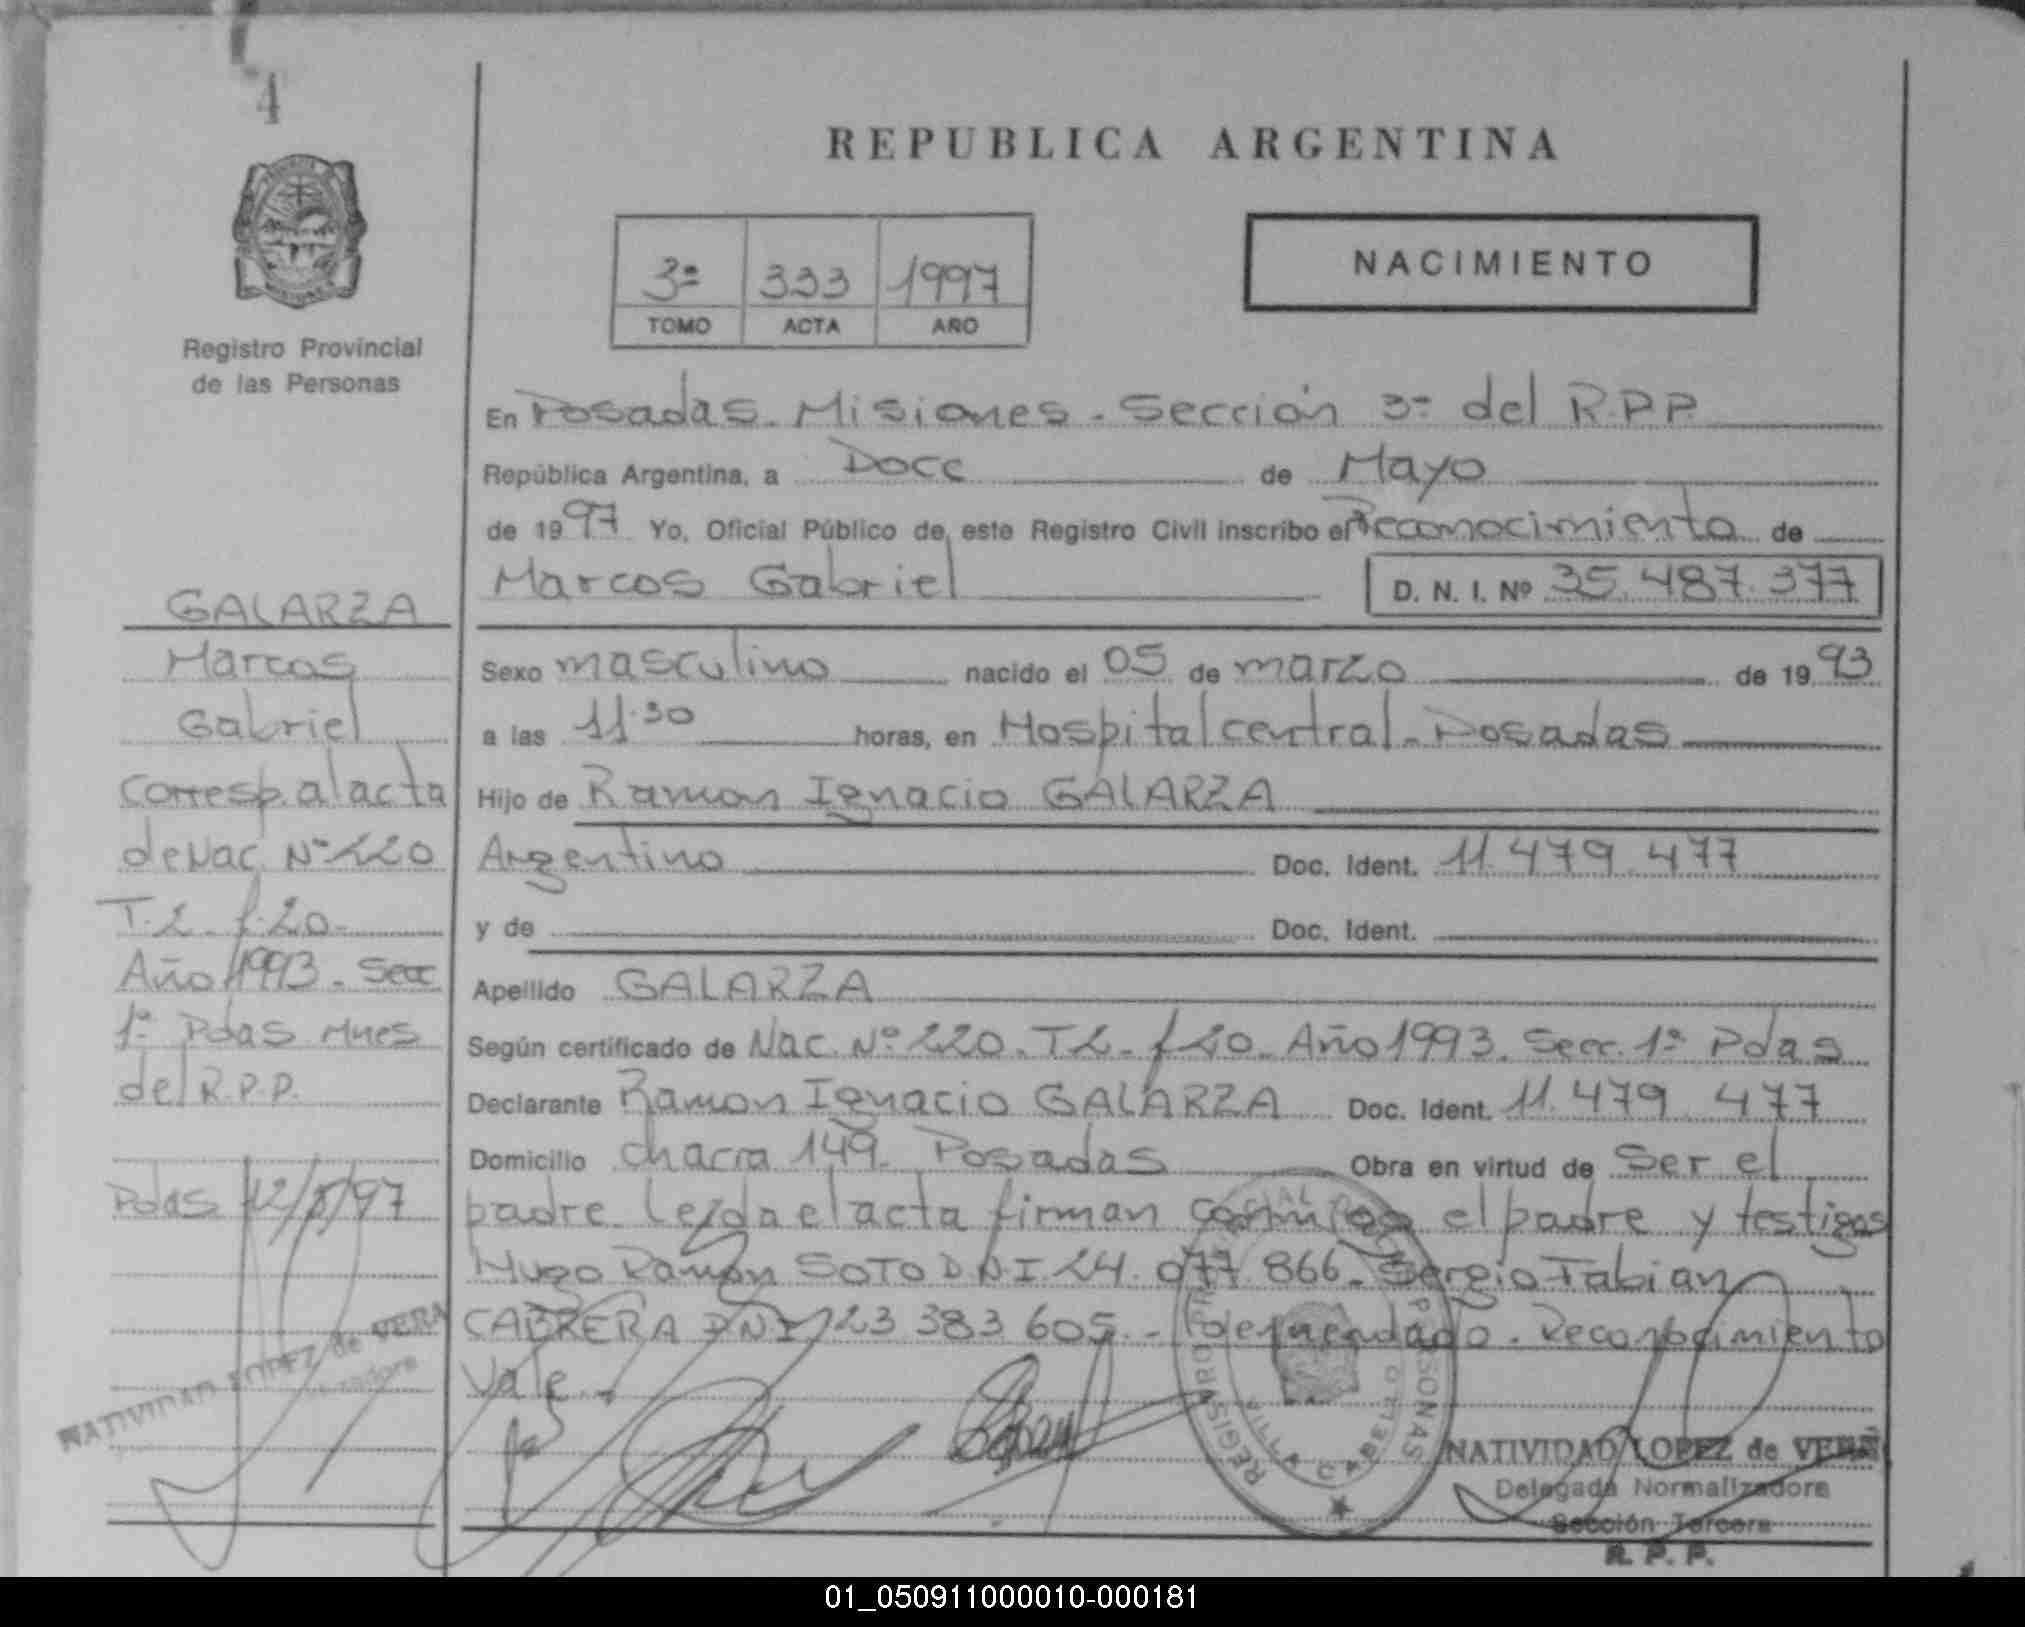 4
REPUBLICA ARGENTINA
3ª 333 1997
TOMO ACTA AÑO
NACIMIENTO
Registro Provincial
de las Personas
En Posadas. Misiones. Sección 3ª del R.P.P.
República Argentina, a Doce de Mayo
de 1997 Yo, Oficial Público de este Registro Civil inscribo el Reconocimiento de
Marcos Gabriel D. N. I. Nº 35.487.377
Sexo masculino nacido el 05 de marzo de 1993
a las 11:30 horas, en Hospital central. Posadas
Hijo de Ramon Ignacio GALARZA
Argentino Doc. Ident. 11.479.477
y de Doc. Ident.
Apellido GALARZA
Según certificado de Nac. Nº 220. T2. f 20. Año 1993. Secc. 1ª Pdas
Declarante Ramon Ignacio GALARZA Doc. Ident. 11.479.477
Domicilio chacra 149. Posadas Obra en virtud de Ser el
padre. Leída el acta firman conmigo el padre y testigos
Hugo Ramon SOTO D.N.I. 24.077.866. Sergio Fabian
CABRERA DNI 23 383 605. Reconocimiento
Vale.
GALARZA
Marcos
Gabriel
Corresp. al acta
de Nac. Nº 220
T. 2. f. 20.
Año 1993. Secc
1ª Pdas Mnes
del R.P.P.
Pdas 12/5/97
NATIVIDAD LOPEZ de VERA
REGISTRO PROVINCIAL PERSONAS
VILLA CABELLO
NATIVIDAD LOPEZ de VERA
Delegada Normalizadora
Sección Tercera
R. P. P.
01_050911000010-000181